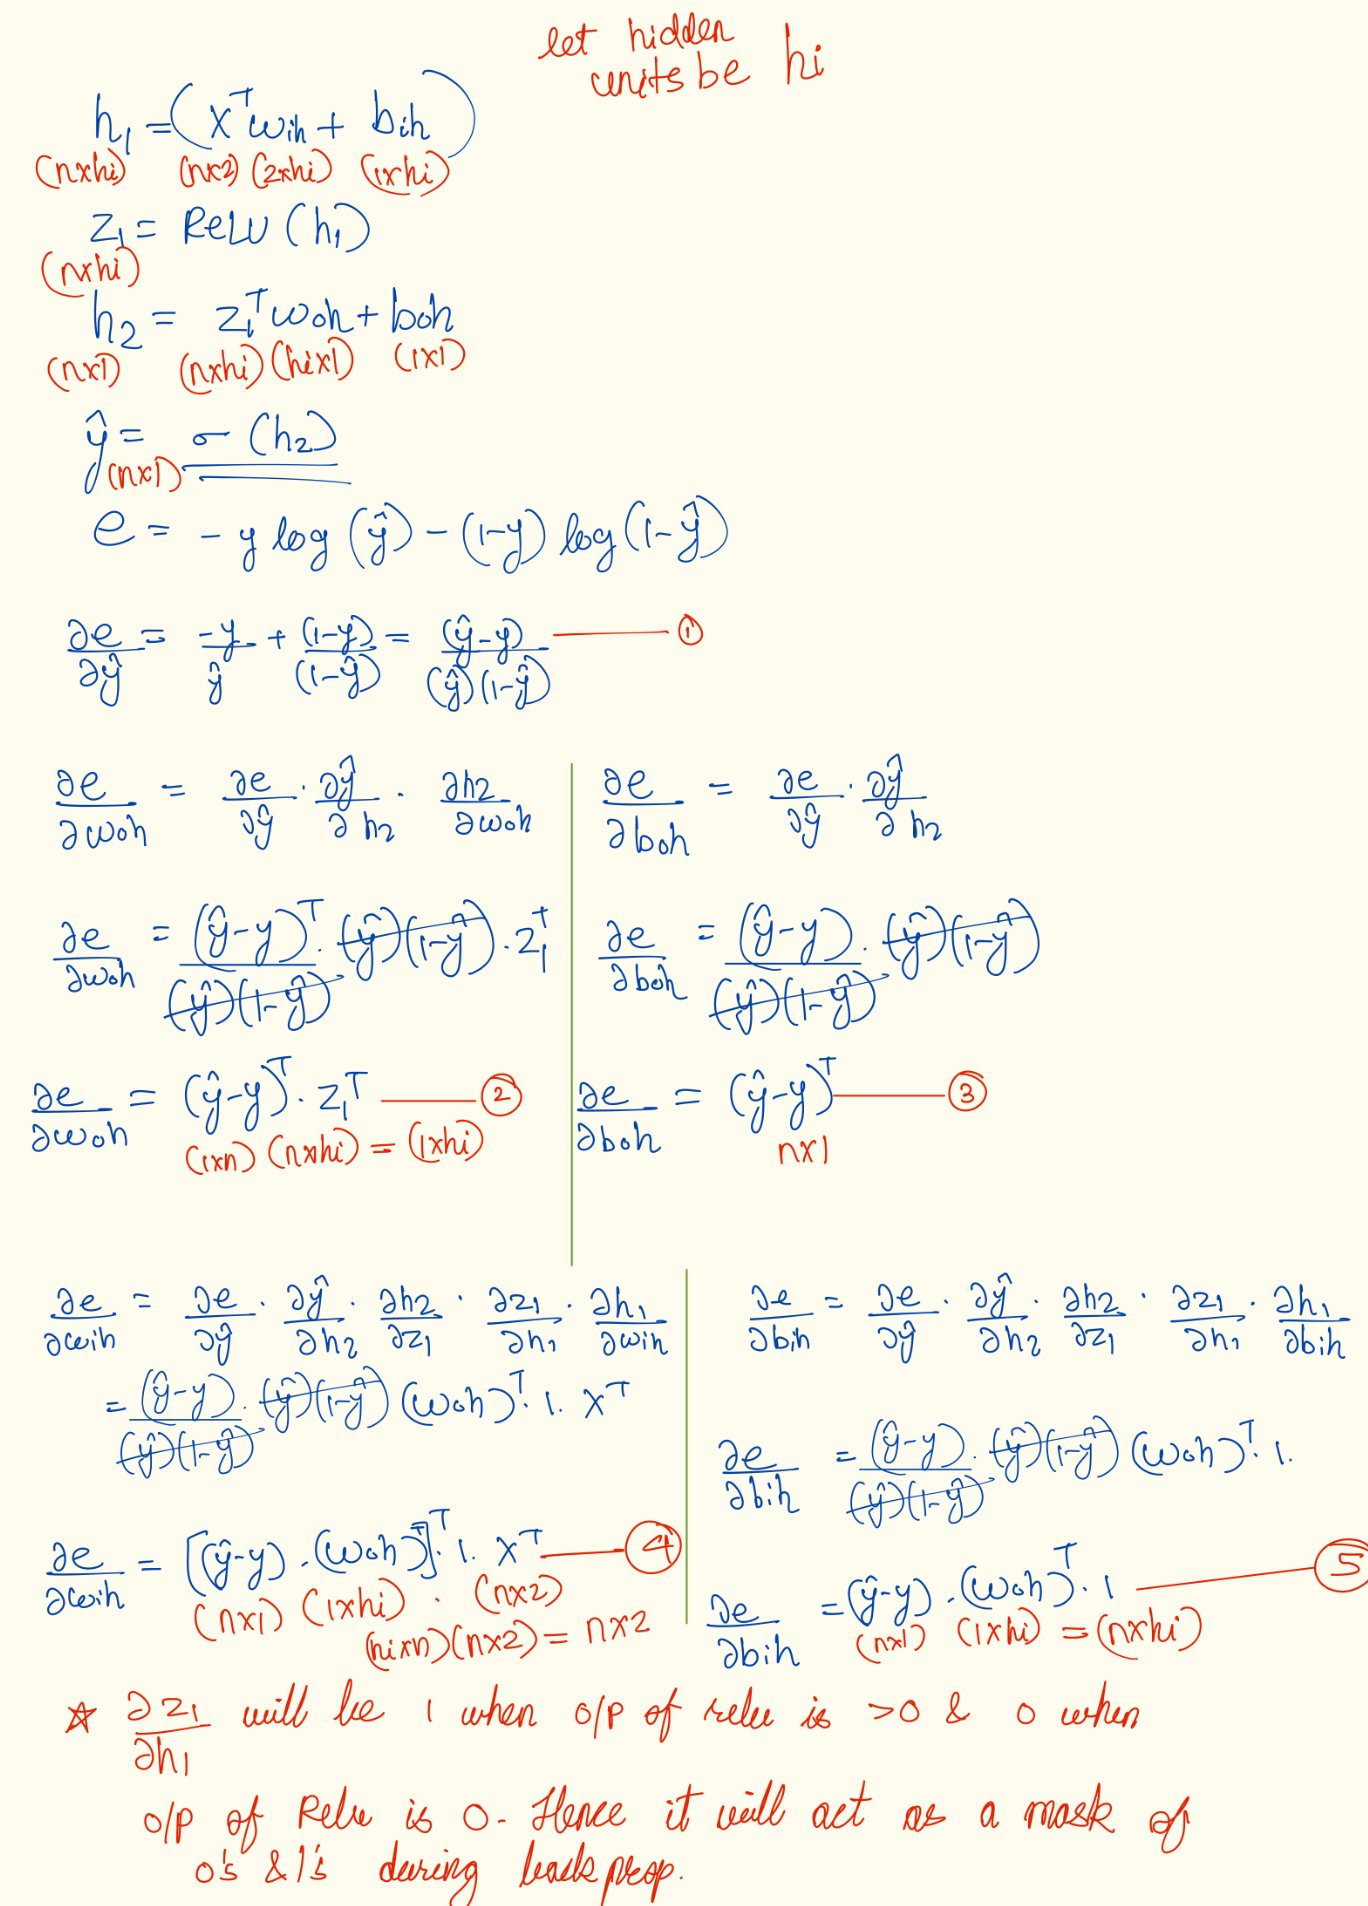 let hidden
units be hi
h₁ = (x^T wih + bih)
(nxhi) (nx2) (2xhi) (1xhi)
z₁ = ReLU (h₁)
(nxhi)
h₂ = z₁^T woh + boh
(nx1) (nxhi) (hix1) (1x1)
ŷ = σ (h₂)
(nx1)
e = - y log (ŷ) - (1-y) log (1-ŷ)
∂e/∂ŷ = -y/ŷ + (1-y)/(1-ŷ) = (ŷ-y)/(ŷ)(1-ŷ) — ①
∂e/∂woh = ∂e/∂ŷ . ∂ŷ/∂h₂ . ∂h2/∂woh
∂e/∂woh = (ŷ-y)^T/(ŷ)(1-ŷ) . (ŷ)(1-ŷ) . z₁^T
∂e/∂woh = (ŷ-y)^T . z₁^T — ②
(1xn) (nxhi) = (1xhi)
∂e/∂boh = ∂e/∂ŷ . ∂ŷ/∂h₂
∂e/∂boh = (ŷ-y)/(ŷ)(1-ŷ) . (ŷ)(1-ŷ)
∂e/∂boh = (ŷ-y)^T — ③
nx1
∂e/∂wih = ∂e/∂ŷ . ∂ŷ/∂h₂ . ∂h2/∂z₁ . ∂z₁/∂h₁ . ∂h₁/∂wih
= (ŷ-y)/(ŷ)(1-ŷ) . (ŷ)(1-ŷ) (woh)^T . 1 . x^T
∂e/∂wih = [(ŷ-y) . (woh)^T]^T . 1 . x^T — ④
(nx1) (1xhi) . (nx2)
(hixn) (nx2) = nx2
∂e/∂bih = ∂e/∂ŷ . ∂ŷ/∂h₂ . ∂h2/∂z₁ . ∂z₁/∂h₁ . ∂h₁/∂bih
∂e/∂bih = (ŷ-y)/(ŷ)(1-ŷ) . (ŷ)(1-ŷ) (woh)^T . 1.
∂e/∂bih = (ŷ-y) . (woh)^T . 1 — ⑤
(nx1) (1xhi) = (nxhi)
☆ ∂z₁/∂h₁ will be 1 when o/p of relu is >0 & 0 when
o/p of Relu is 0. Hence it will act as a mask of
0's & 1's during backprop.